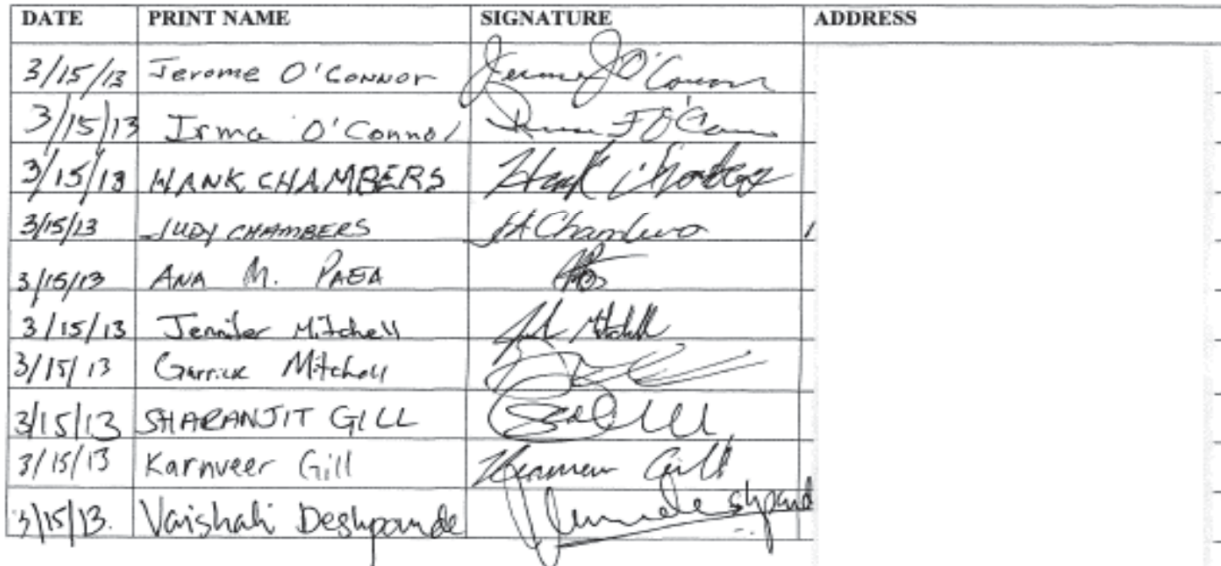 DATE PRINT NAME SIGNATURE ADDRESS
3/15/13 Jerome O'Connor Jerome J O'Connor
3/15/13 Irma O'Connor Irma F O'Connor
3/15/13 HANK CHAMBERS Hank Chambers
3/15/13 JUDY CHAMBERS JA Chambers
3/15/13 ANA M. PAEA
3/15/13 Jennifer Mitchell Mitchell
3/15/13 Garrick Mitchell
3/15/13 SHARANJIT GILL Gill
3/15/13 Karnveer Gill Karnveer Gill
3/15/13. Vaishali Deshpande Deshpand